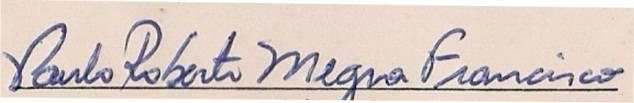 Paulo Roberto Megna Francisco